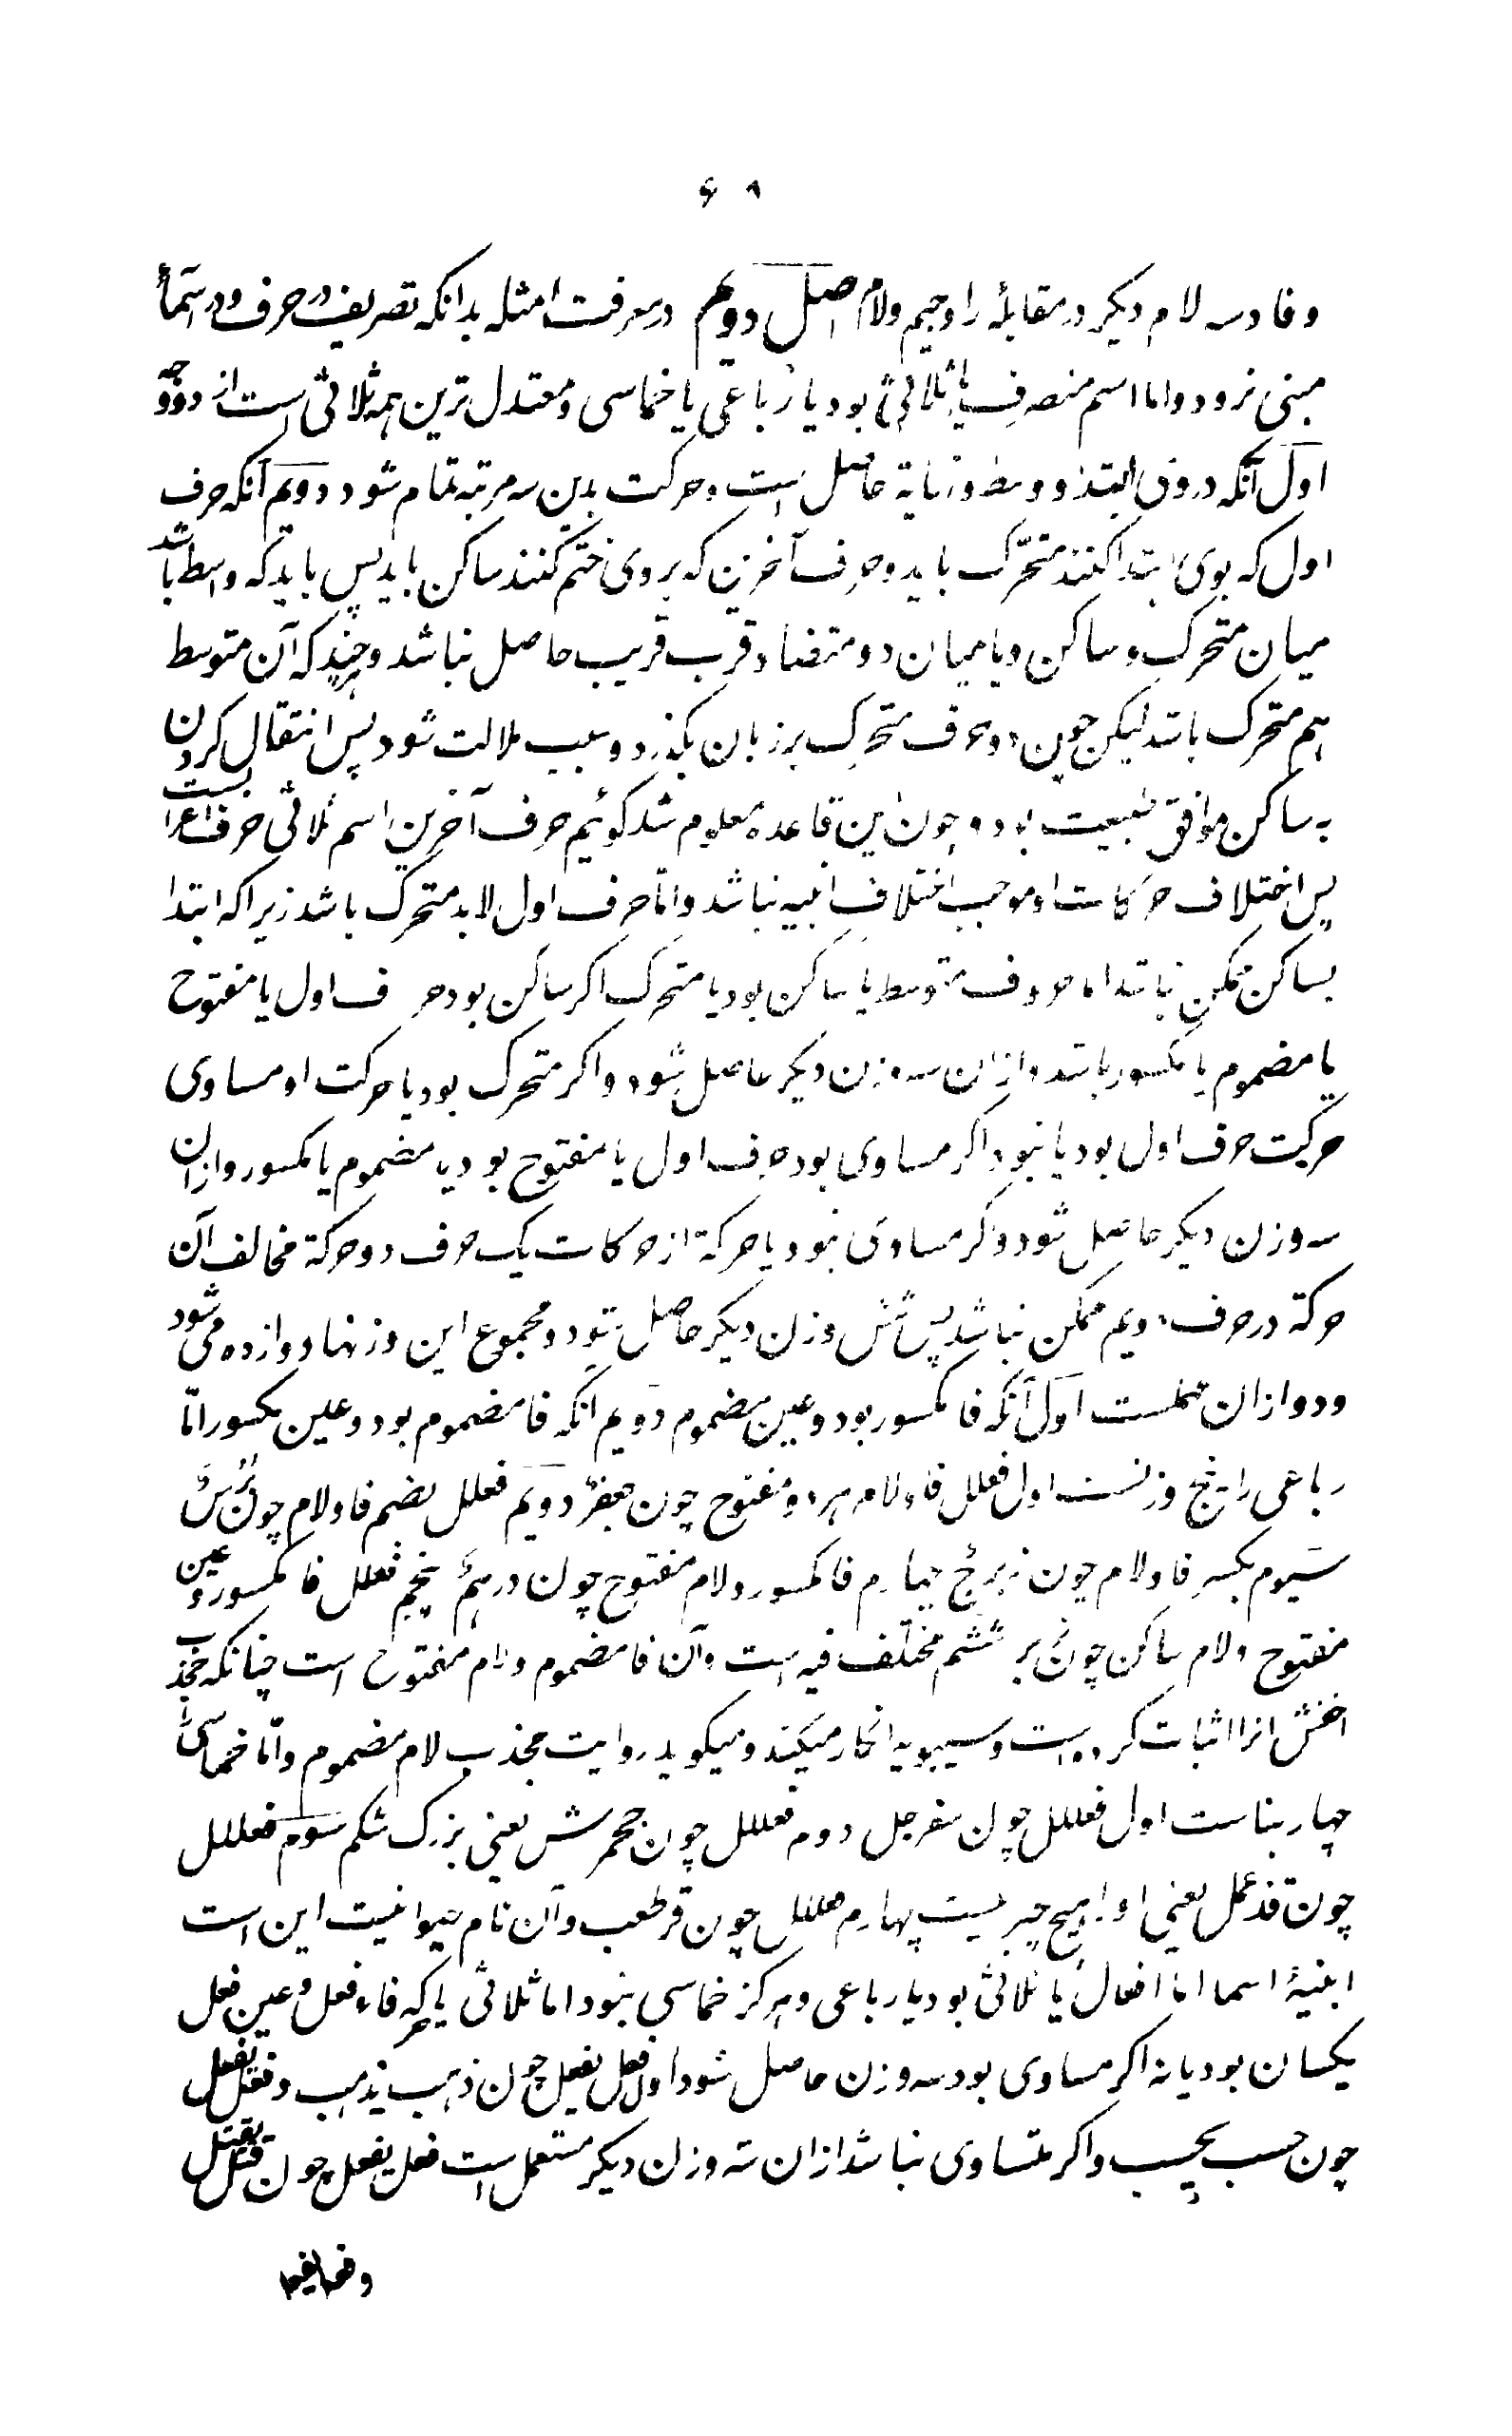 ۶۸
وفا و سه لام دیکر در مقابلهٔ را و جیم ولام اصل دویم در معرفت امثله بدانکه تصریف در حرف و در اسماء
مبنی نرود واما اسم منصرف یا ثلاثی بود یا رباعی یا خماسی و معتدل ترین همه ثلاثی است از دو وجه
اول آنکه دروی ابتدا و وسط و نهایة حاصل است و حرکت بدین سه مرتبه تمام شود دویم آنکه حرف
اول که بوی ابتدا کنند متحرّک باید و حرف آخرین که بروی ختم کنند ساکن باید پس باید که واسطه باشد
میان متحرک و ساکن و یا میان دو متضاد قرب قریب حاصل نباشد و هرچند که آن متوسط
هم متحرک باشد لیکن چون دو حرف متحرک بر زبان بکذرد و سبب ملالت شود پس انتقال کردن
به ساکن موافق طبیعت بود و چون این قاعده معلوم شد کوئیم حرف آخرین اسم ثلاثی حرف اعرابست
پس اختلاف حرکات او موجب اختلاف ابنیه نباشد وامّا حرف اول لابد متحرک باشد زیرا که ابتدا
بساکن ممکن نباشد اما حروف متوسط یا ساکن بود یا متحرک اکر ساکن بود حرف اول یا مفتوح
یا مضموم یا مکسور باشد و ازان سه وزن دیکر حاصل شود و اکر متحرک بود یا حرکت او مساوی
حرکت حرف اول بود یا نبود اکر مساوی بود حرف اول یا مفتوح بود یا مضموم یا مکسور وازان
سه وزن دیکر حاصل شود وکر مساوی نبود یا حرکة از حرکات یک حرف دو حرکة مخالف آن
حرکة در حرف دویم ممکن نباشد پس شش وزن دیکر حاصل شود و مجموع این وزنها دوازده می شود
ودو ازان مهملست اول آنکه فا مکسور بود و عین مضموم دویم انکه فا مضموم بود و عین مکسور امّا
رباعی را پنج وزنست اول فعلل فا و لام هر دو مفتوح چون جعفر دویم فعلل بضم فا و لام چون برثن
سیوم بکسر فا و لام چون زبرج چهارم فا مکسور و لام مفتوح چون درهم پنجم فعلل فا مکسور و عین
مفتوح و لام ساکن چون بر ششم مختلف فیه است و آن فا مضموم و لام مفتوح است چنانکه جخدب
اخفش انرا اثبات کرده است و سیبویه انکار میکند و میکوید روایت جخدب لام مضموم وامّا خماسی را
چهار بناست اول فعللل چون سفرجل دوم فعللل چون جحمرش یعنی بزرک شکم سوم فعللل
چون قذعمل یعنی او را هیچ چیز نیست چهارم فعللل چون قرطعب و آن نام حیوانیست این است
ابنیهٔ اسما اما افعال یا ثلاثی بود یا رباعی و هرکز خماسی نبود اما ثلاثی یا حرکه فاء فعل و عین فعل
یکسان بود یا نه اکر مساوی بود سه وزن حاصل شود اول فعل یفعل چون ذهب یذهب و فعل یفعل
چون حسب یحسب و اکر متساوی نباشد ازان سه وزن دیکر مستعمل است فعل یفعل چون قتل یقتل
وفعل یفعل